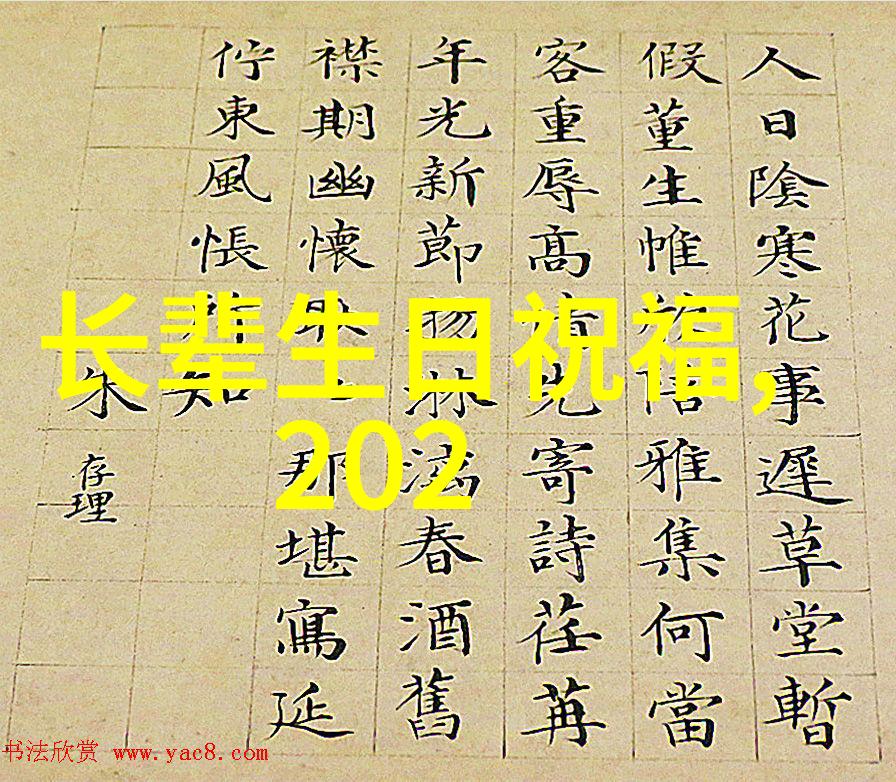 人日陰寒花事遲草堂暫
假董生帷陪雅集何當
客重辱高先寄詩荏苒
年光新節物淋漓春酒舊
襟期幽懷那堪寫延
佇東風悵所知
朱存理
长辈生日祝福,
202
书法欣赏 www.yac8.com